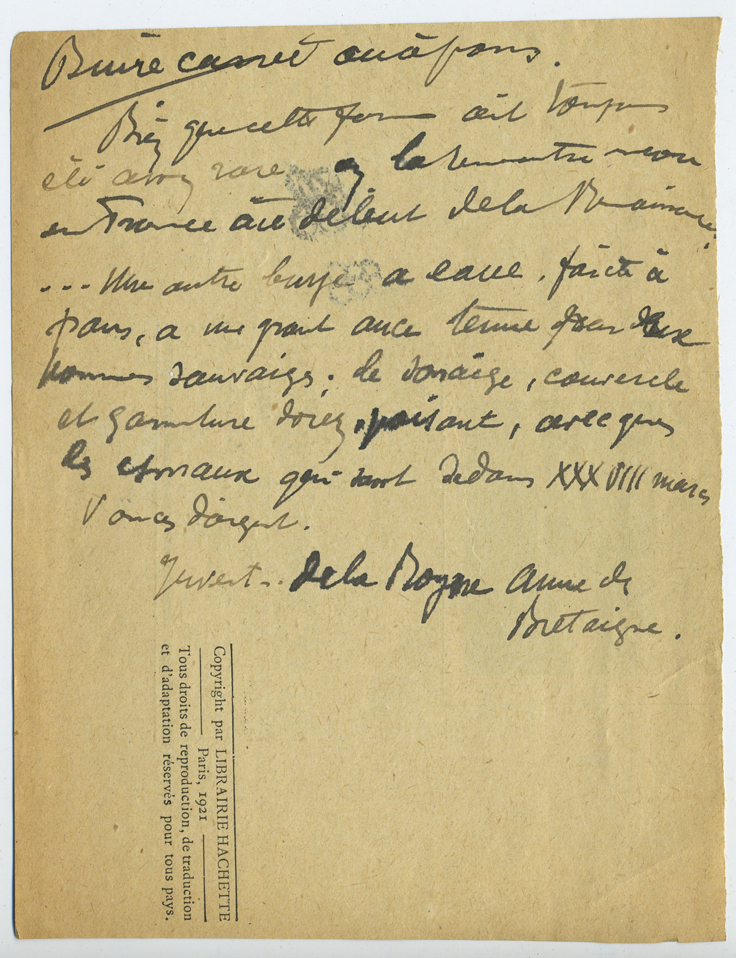 Buire carrée ou à pans.
Bien que cette forme ait toujours
été assez rare, on la rencontre
en France au début de la Renaissance.
... Une autre buye a eaue, faicte à
pans, a une ance tenue par deux
hommes sauvaiges; le
et garniture dorez, poisant, avecques
les esmaux qui sont dedans XXXVIII marcs
V onces d'argent.
Invent. de la Royne Anne de
Bretaigne.
Copyright par LIBRAIRIE HACHETTE
Paris, 1921
Tous droits de reproduction, de traduction
et d'adaptation réservés pour tous pays.